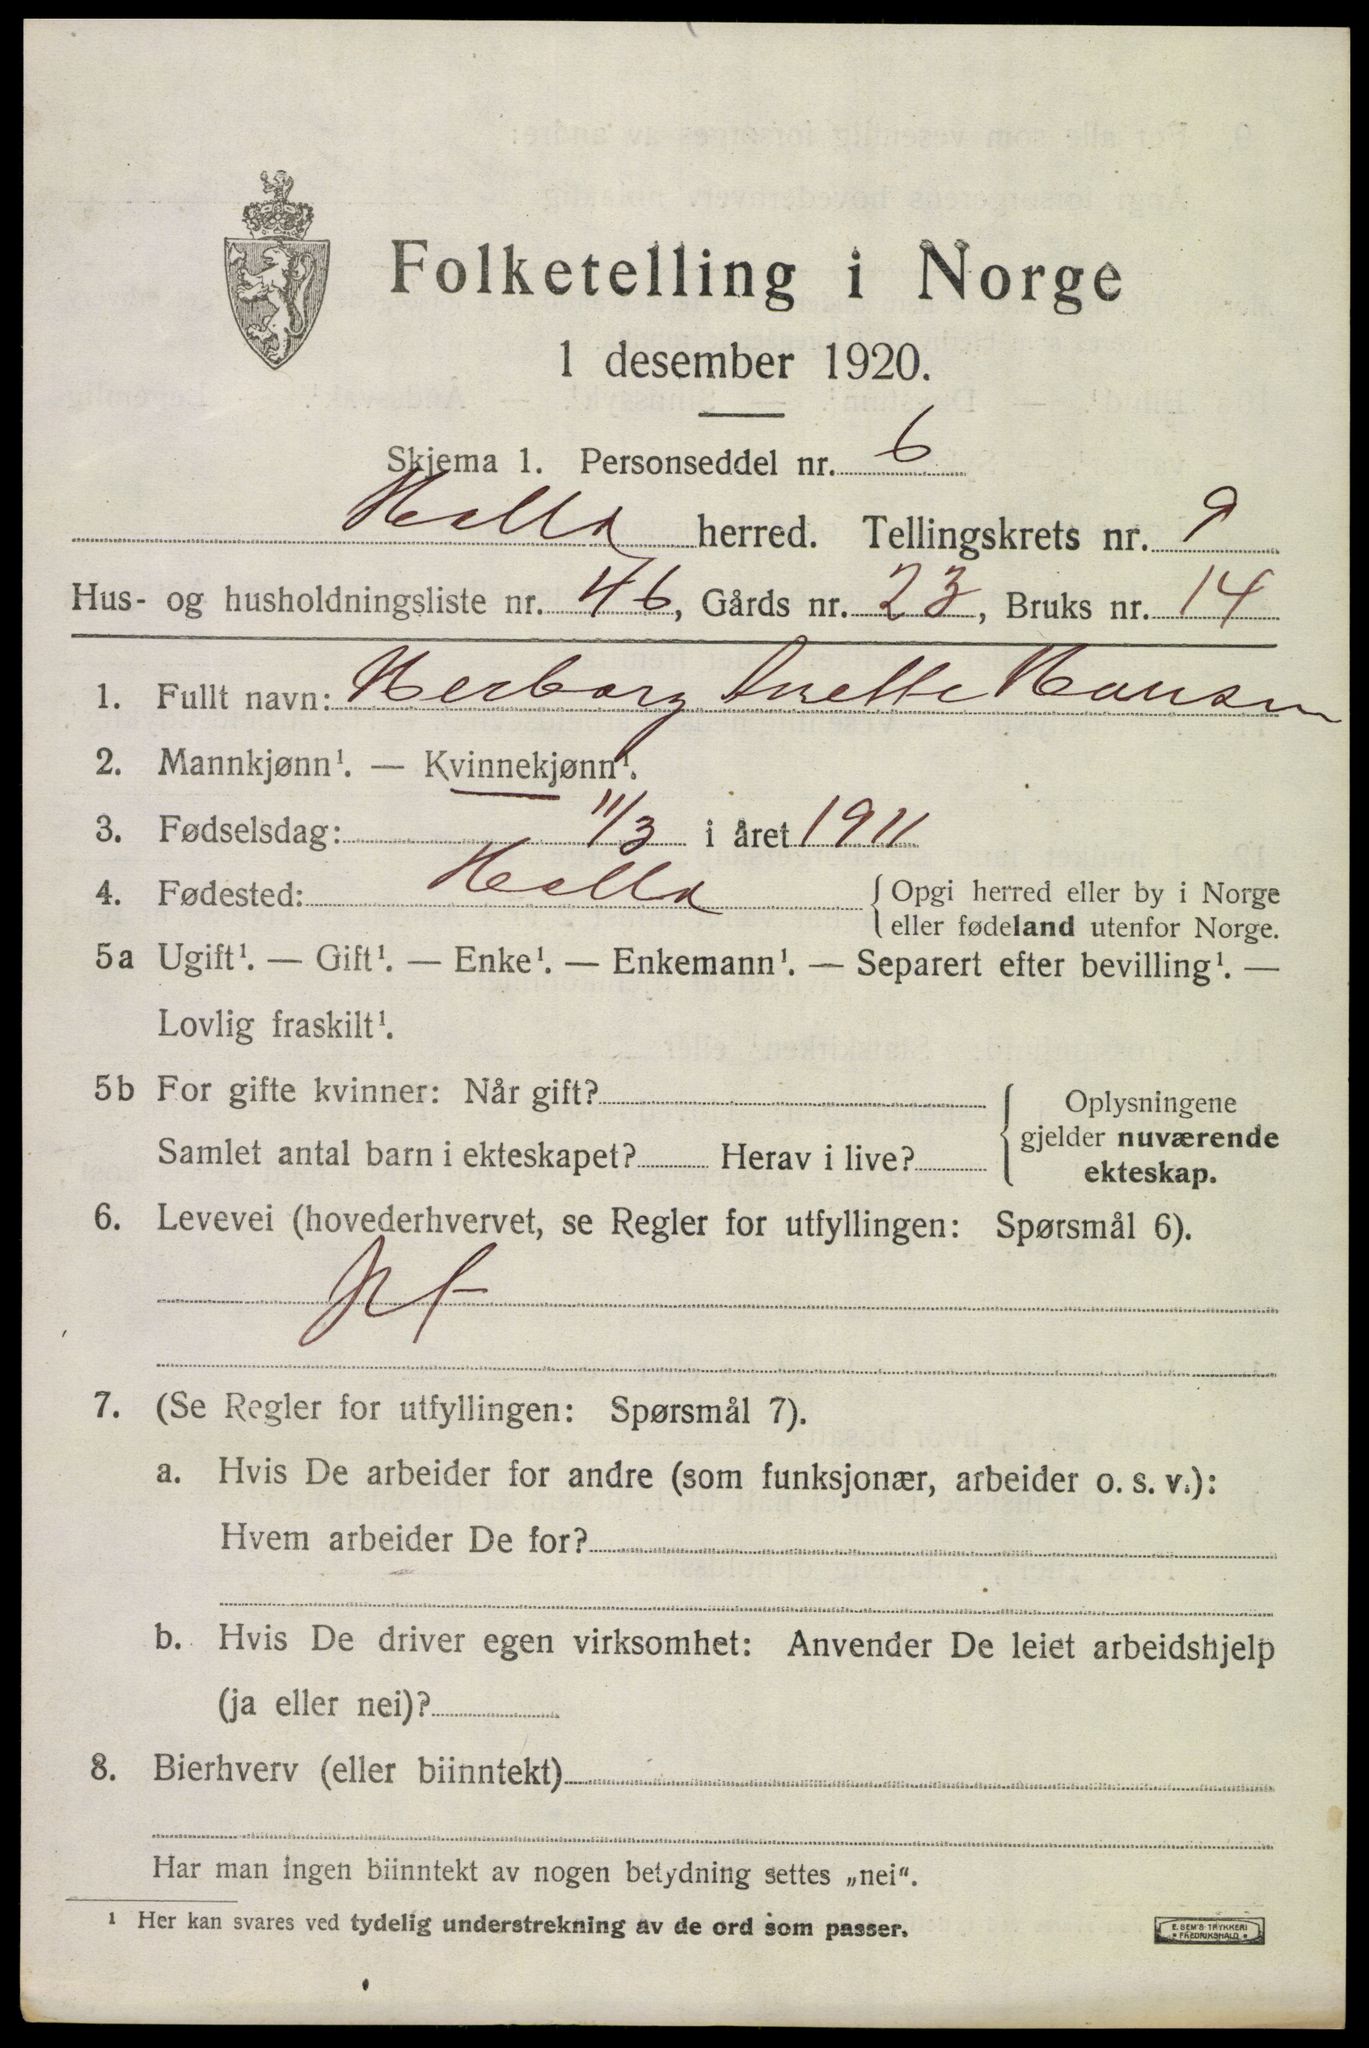 Folketelling i Norge
1 desember 1920.
Skjema 1. Personseddel nr. 6
Holla herred. Tellingskrets nr. 9
Hus- og husholdningsliste nr. 46, Gårds nr. 23, Bruks nr. 14
1. Fullt navn: Herborg Anette Hansen
2. Mannkjønn¹. — Kvinnekjønn¹.
3. Fødselsdag: 11/3 i året 1911
4. Fødested: Holla { Opgi herred eller by i Norge
eller fødeland utenfor Norge.
5a Ugift¹. — Gift¹. — Enke¹. — Enkemann¹. — Separert efter bevilling¹. —
Lovlig fraskilt¹.
5b For gifte kvinner: Når gift?
Samlet antal barn i ekteskapet? Herav i live?
{ Oplysningene
gjelder nuværende
ekteskap.
6. Levevei (hovederhvervet, se Regler for utfyllingen: Spørsmål 6).
7. (Se Regler for utfyllingen: Spørsmål 7).
a. Hvis De arbeider for andre (som funksjonær, arbeider o. s. v.):
Hvem arbeider De for?
b. Hvis De driver egen virksomhet: Anvender De leiet arbeidshjelp
(ja eller nei)?
8. Bierhverv (eller biinntekt)
Har man ingen biinntekt av nogen betydning settes „nei“.
¹ Her kan svares ved tydelig understrekning av de ord som passer.
E. SEM'S TRYKKERI
FREDRIKSHALD